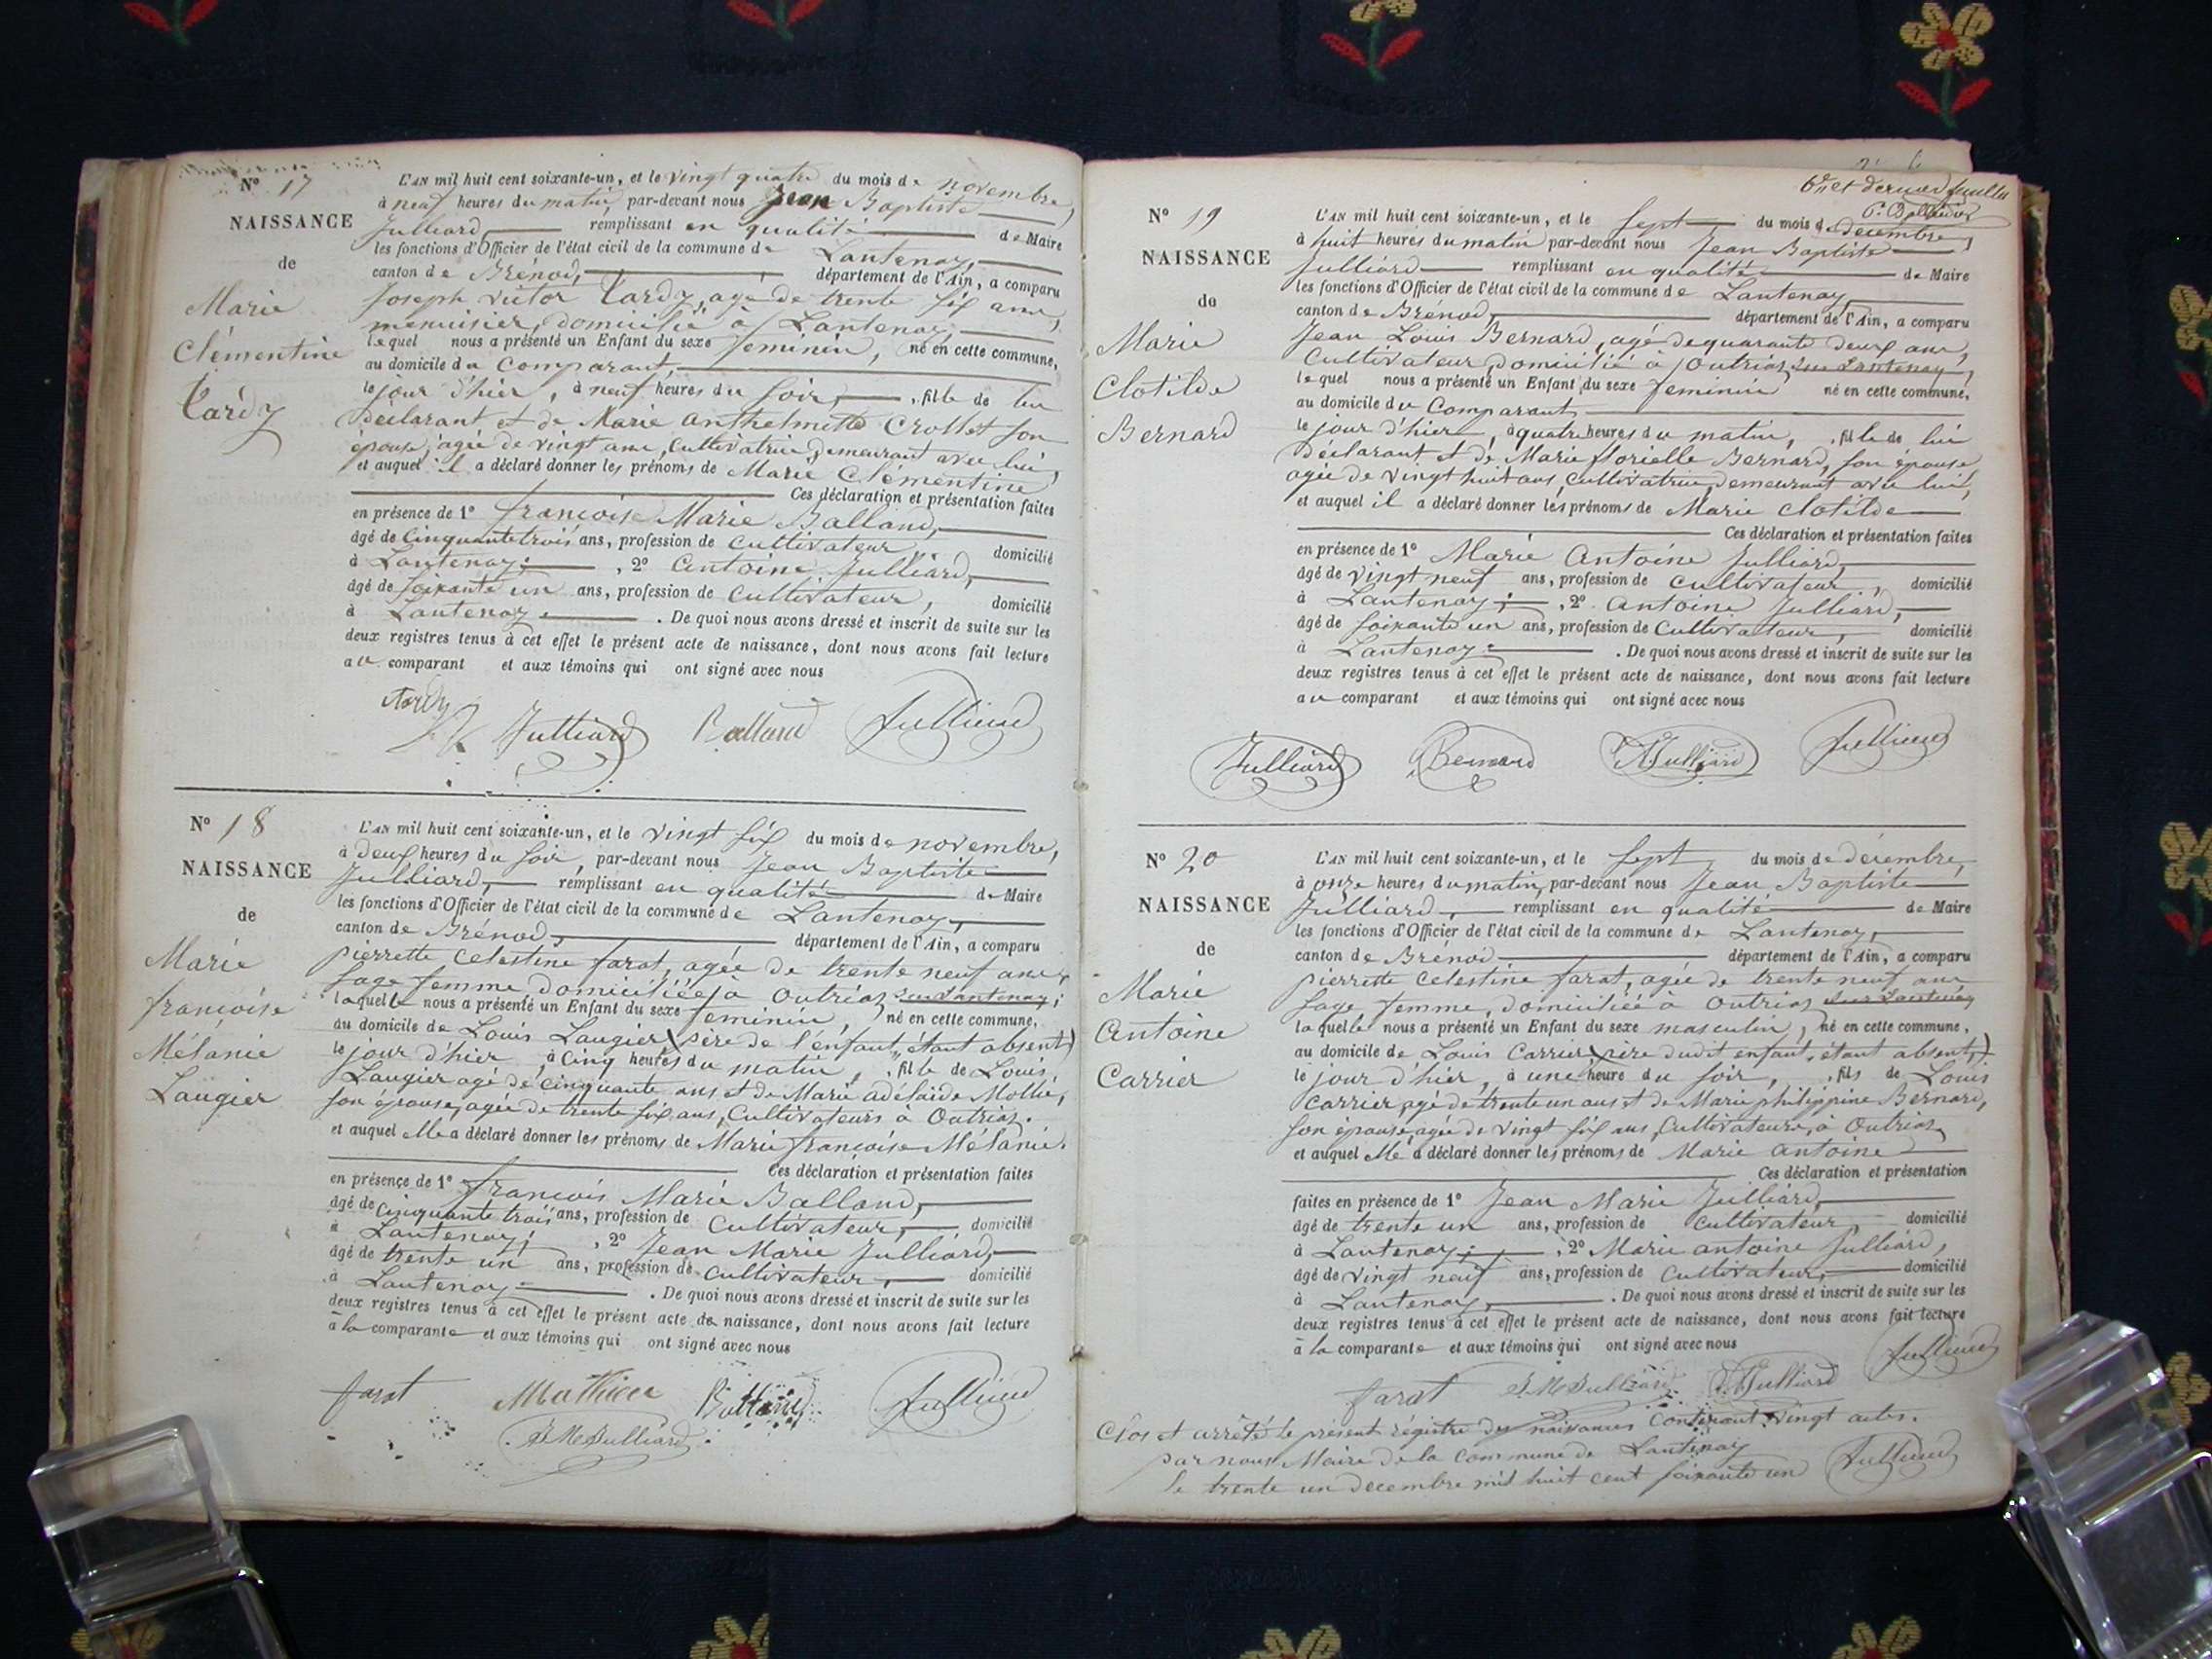 N° 17
NAISSANCE
de
Marie
Clémentine
Tardy
L'AN mil huit cent soixante-un, et le vingt quatre du mois de novembre,
à neuf heures du matin, par-devant nous Jean Baptiste
Julliard, remplissant en qualité de Maire
les fonctions d'Officier de l'état civil de la commune de Lantenay,
canton de Brénod, département de l'Ain, a comparu
Joseph Victor Tardy, agé de trente six ans,
menuisier, domicilié à Lantenay
lequel nous a présenté un Enfant du sexe feminin, né en cette commune,
au domicile du Comparant,
le jour d'hier, à neuf heures du soir, fille de lui
declarant et de Marie Anthelmette Crollet son
épouse, agée de vingt ans, cultivatrice, demeurant avec lui,
et auquel il a déclaré donner les prénoms de Marie Clémentine
Ces déclaration et présentation faites
en présence de 1° françois Marie Balland,
âgé de Cinquante trois ans, profession de cultivateur, domicilié
à Lantenay; , 2° Antoine Julliard,
âgé de soixante un ans, profession de cultivateur, domicilié
à Lantenay . De quoi nous avons dressé et inscrit de suite sur les
deux registres tenus à cet effet le présent acte de naissance, dont nous avons fait lecture
au comparant et aux témoins qui ont signé avec nous
tardy Julliard Balland Julliard
N° 18
NAISSANCE
de
Marie
françoise
Mélanie
Laugier
L'AN mil huit cent soixante-un, et le vingt six du mois de novembre,
à deux heures du soir, par-devant nous Jean Baptiste
Julliard, remplissant en qualité de Maire
les fonctions d'Officier de l'état civil de la commune de Lantenay,
canton de Brénod, département de l'Ain, a comparu
pierrette Celestine farat, agée de trente neuf ans,
sage femme domiciliée à Outriaz sur Lantenay;
laquelle nous a présenté un Enfant du sexe feminin, né en cette commune,
au domicile de Louis Laugier (père de l'enfant, étant absent)
le jour d'hier, à Cinq heures du matin, fille de Louis
Laugier agé de cinquante ans et de Marie adélaïde Mollié,
son épouse, agée de trente six ans, Cultivateurs à Outriaz.
et auquel elle a déclaré donner les prénoms de Marie françoise Mélanie.
Ces déclaration et présentation faites
en présence de 1° françois Marie Balland,
âgé de cinquante trois ans, profession de Cultivateur, domicilié
à Lantenay; , 2° Jean Marie Julliard,
âgé de trente un ans, profession de cultivateur, domicilié
à Lantenay . De quoi nous avons dressé et inscrit de suite sur les
deux registres tenus à cet effet le présent acte de naissance, dont nous avons fait lecture
à la comparante et aux témoins qui ont signé avec nous
farat Balland Julliard
J M Julliard
6me et dernier feuillet
N° 19
NAISSANCE
de
Marie
Clotilde
Bernard
L'AN mil huit cent soixante-un, et le sept du mois de décembre,
à huit heures du matin par-devant nous Jean Baptiste
Julliard remplissant en qualité de Maire
les fonctions d'Officier de l'état civil de la commune de Lantenay,
canton de Brénod, département de l'Ain, a comparu
Jean Louis Bernard, agé de quarante deux ans,
Cultivateur, domicilié à Outriaz sur Lantenay,
lequel nous a présenté un Enfant du sexe feminin né en cette commune,
au domicile du Comparant,
le jour d'hier, à quatre heures du matin, fille de lui
déclarant et de Marie florielle Bernard, son épouse
agée de vingt huit ans, Cultivatrice, demeurant avec lui,
et auquel il a déclaré donner les prénoms de Marie Clotilde
Ces déclaration et présentation faites
en présence de 1° Marie Antoine Julliard,
âgé de vingt neuf ans, profession de cultivateur, domicilié
à Lantenay; , 2° Antoine Julliard,
âgé de soixante un ans, profession de Cultivateur, domicilié
à Lantenay . De quoi nous avons dressé et inscrit de suite sur les
deux registres tenus à cet effet le présent acte de naissance, dont nous avons fait lecture
au comparant et aux témoins qui ont signé avec nous
Julliard Bernard Julliard Julliard
N° 20
NAISSANCE
de
Marie
Antoine
Carrier
L'AN mil huit cent soixante-un, et le sept du mois de décembre,
à onze heures du matin, par-devant nous Jean Baptiste
Julliard, remplissant en qualité de Maire
les fonctions d'Officier de l'état civil de la commune de Lantenay,
canton de Brénod département de l'Ain, a comparu
pierrette Celestine farat, agée de trente neuf ans
sage femme, domiciliée à Outriaz sur Lantenay
laquelle nous a présenté un Enfant du sexe masculin, né en cette commune,
au domicile de Louis Carrier (père dudit enfant, étant absent,)
le jour d'hier, à une heure du soir, fils de Louis
Carrier, agé de trente un ans et de Marie philippine Bernard,
son épouse, agée de vingt six ans, Cultivateurs, à Outriaz
et auquel elle a déclaré donner les prénoms de Marie antoine
Ces déclaration et présentation
faites en présence de 1° Jean Marie Julliard,
âgé de trente un ans, profession de cultivateur, domicilié
à Lantenay; , 2° Marie antoine Julliard,
âgé de vingt neuf ans, profession de Cultivateur, domicilié
à Lantenay, . De quoi nous avons dressé et inscrit de suite sur les
deux registres tenus à cet effet le présent acte de naissance, dont nous avons fait lecture
à la comparante et aux témoins qui ont signé avec nous
farat J M Julliard Julliard Julliard
Clos et arrêté le présent régistre des naissances contenant vingt actes.
par nous Maire de la Commune de Lantenay
le trente un decembre mil huit cent soixante un Julliard